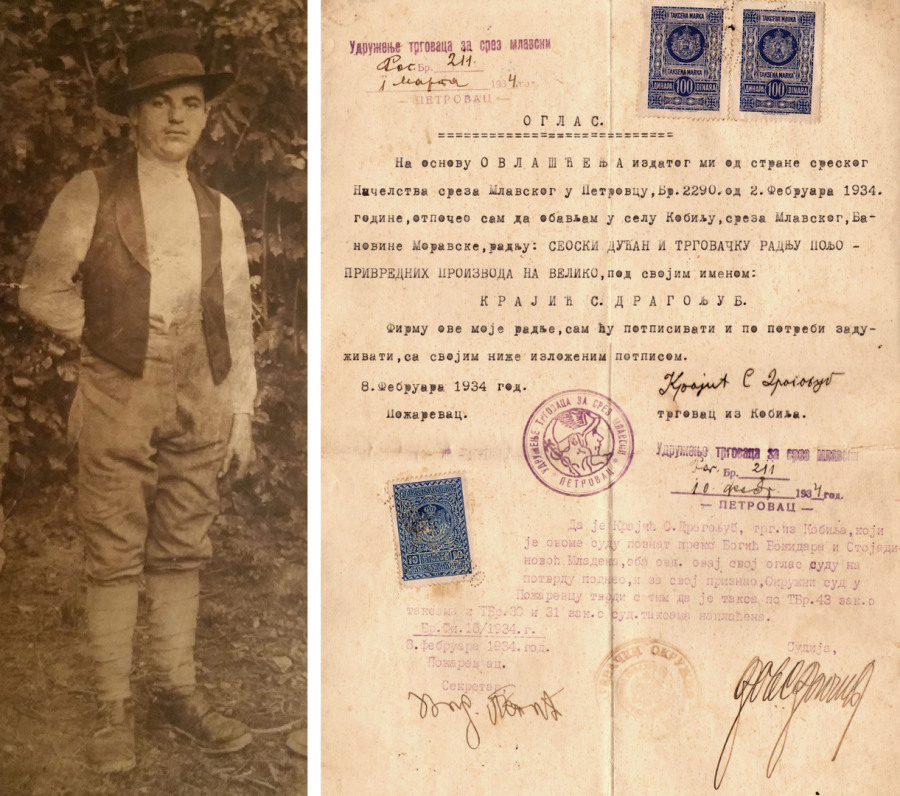 Удружење трговаца за срез млавски
Рег. Бр. 211.
1 марта 1934 год.
— ПЕТРОВАЦ —
ТАКСЕНА МАРКА
ТАКСЕНА МАРКА
ДИНАРА 100 DINARA
ТАКСЕНА МАРКА
ТАКСЕНА МАРКА
ДИНАРА 100 DINARA
О Г Л А С.
=============================
На основу О В Л А Ш Ћ Е Њ А издатог ми од стране среског
Ничелства среза Млавског у Петровцу, Бр.2290.од 2.Фебруара 1934.
године,отпочео сам да обављам у селу Кобиљу,среза Млавског,Ба-
новине Моравске,радњу: СЕОСКИ ДУЋАН И ТРГОВАЧКУ РАДЊУ ПОЉО -
ПРИВРЕДНИХ ПРОИЗВОДА НА ВЕЛИКО,под својим именом:
К Р А Ј И Ћ С. Д Р А Г О Љ У Б.
Фирму ове моје радње,сам ћу потписивати и по потреби заду-
живати,са својим ниже изложеним потписом.
8.Фебруара 1934 год.
Пожаревац.
Крајић С Драгољуб
трговац из Кобиља.
УДРУЖЕЊЕ ТРГОВАЦА ЗА СРЕЗ МЛАВСКИ
ПЕТРОВАЦ
Удружење трговаца за срез млавски
Рег. Бр. 211
10 1934 год.
— ПЕТРОВАЦ —
10 10
Да је Крајић С.Драгољуб, трг.из Кобиља,који
је овоме суду познат преко Богић Божидара и Стојади-
новоћ Младена,оба овд. овај свој оглас суду на
потврду поднео,и за свој признао,Окружни суд у
Пожаревцу тврди с тим да је такса по ТБр.43 зак.о
таксама и ТБр.30 и 31 зак.о суд.таксама наплаћена.
16/1934.г.
8.фебруара 1934.год.
Пожаревац.
Секретар,
Судија,